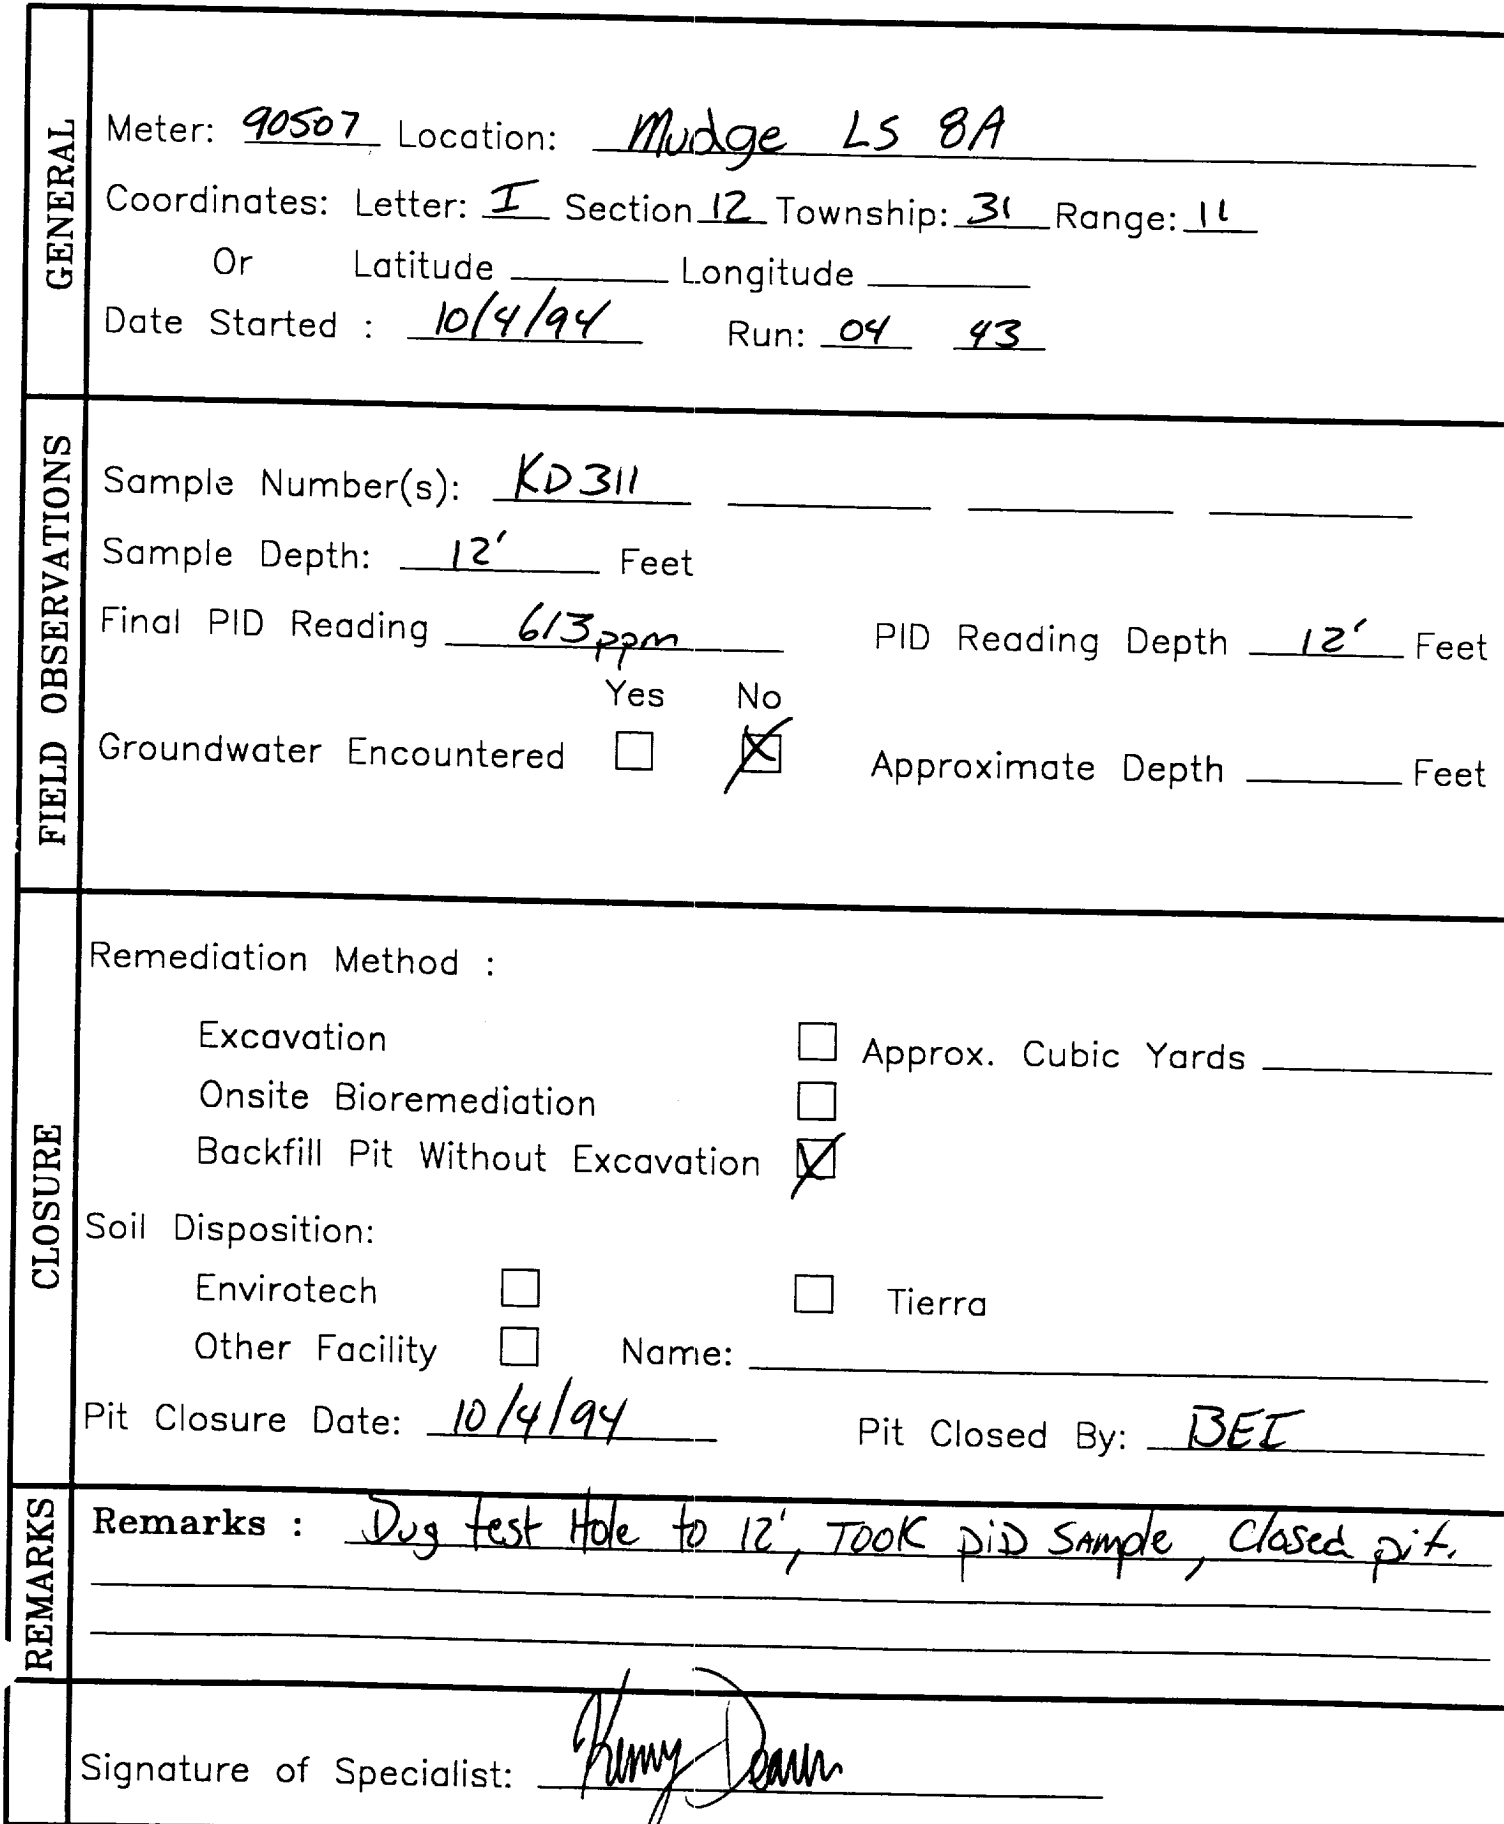 GENERAL
Meter: 90507 Location: Mudge LS 8A
Coordinates: Letter: I Section 12 Township: 31 Range: 11
Or Latitude Longitude
Date Started : 10/4/94 Run: 04 43
FIELD OBSERVATIONS
Sample Number(s): KD311
Sample Depth: 12' Feet
Final PID Reading 613 ppm PID Reading Depth 12' Feet
Yes No
Groundwater Encountered Approximate Depth Feet
CLOSURE
Remediation Method :
Excavation Approx. Cubic Yards
Onsite Bioremediation
Backfill Pit Without Excavation
Soil Disposition:
Envirotech Tierra
Other Facility Name:
Pit Closure Date: 10/4/94 Pit Closed By: BEI
REMARKS
Remarks : Dug test Hole to 12', TOOK PiD SAmple, Closed pit.
Signature of Specialist: